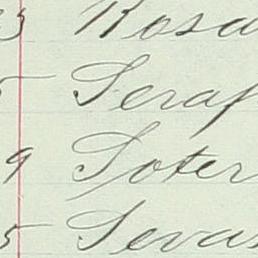 23 Rosa
5 Seraf
9 Soter
5 Sevas